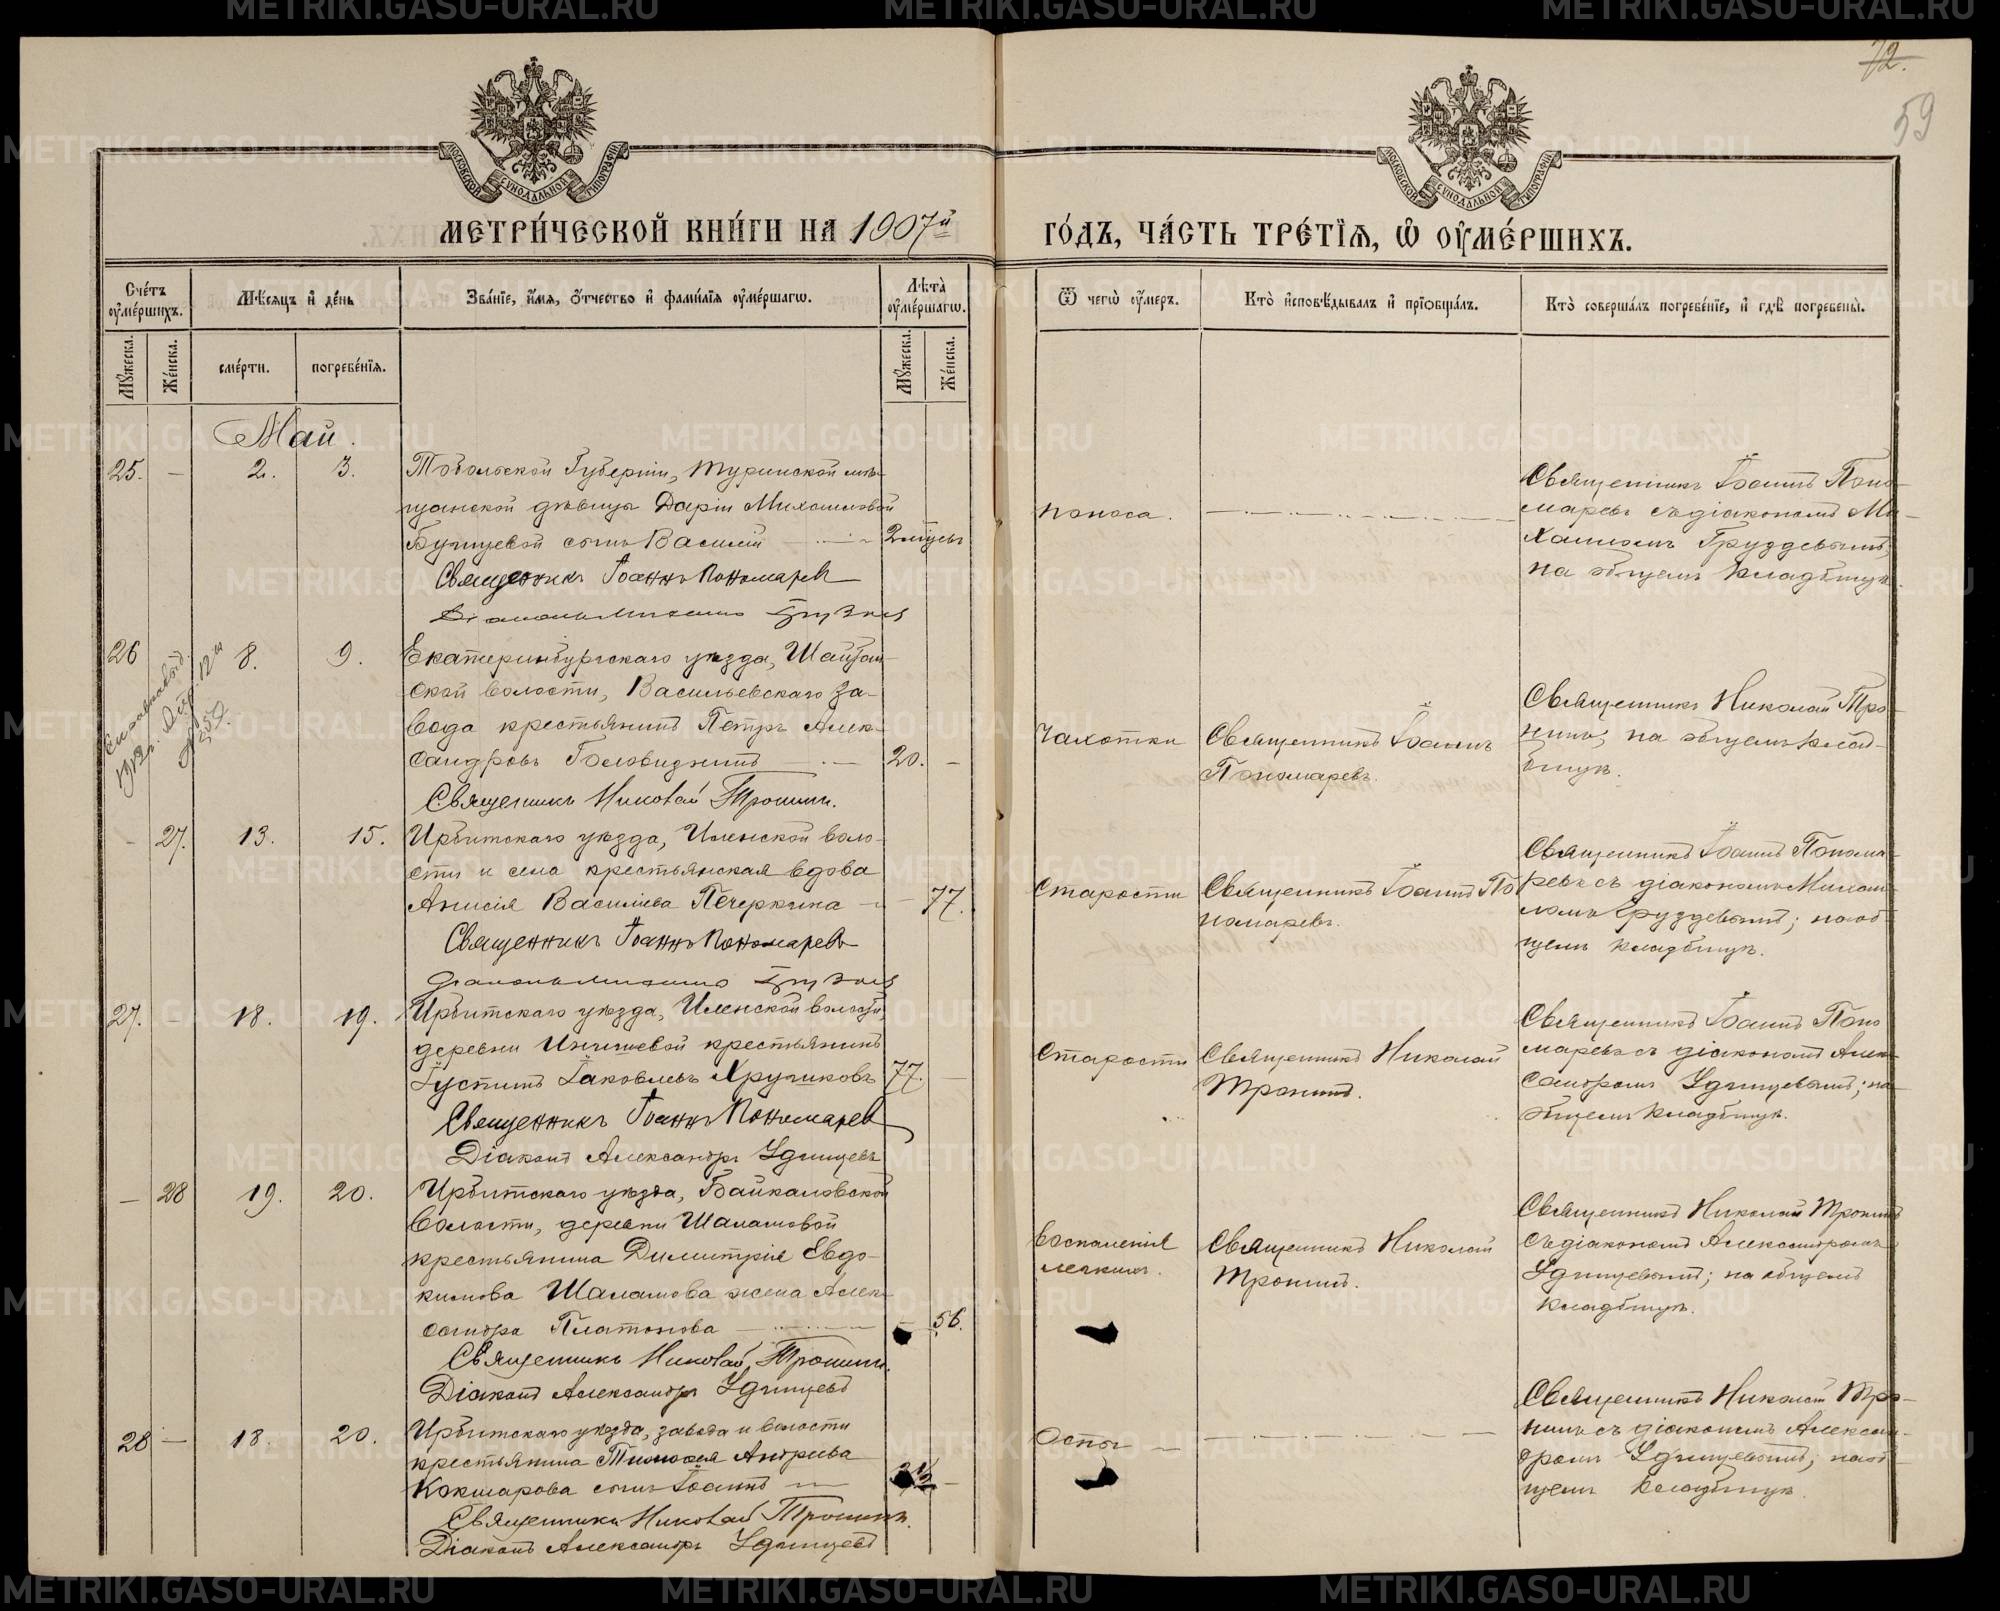 METRIKI.GASO-URAL.RU
72.
59
МОСКОВСКОЙ СѴНОДАЛЬНОЙ ТИПОГРАФІИ
МЕТРИ́ЧЕСКОЙ КНИ́ГИ НА 1907й
ГО́ДЪ, ЧА́СТЬ ТРЕ́ТІѦ, Ѽ ОУМЕ́РШИХЪ.
Сче́тъ оумершихъ.
Мѣсяцъ и день
Званіе, имя, отчество и фамилія оумершагѡ.
Лѣта оумершагѡ.
Мужеска.
Женска.
смерти.
погребенія.
Мужеска.
Женска.
Ѿ чегѡ оумеръ.
Кто исповѣдывалъ и пріобщалъ.
Кто совершалъ погребеніе, и гдѣ погребены.
Май.
25. — 2. 3.
Тобольской Губерніи, Туринской мѣ-
щанской дѣвицы Даріи Михаиловой
сынъ Василій — 2 мѣсяц
Священникъ Іоаннъ Пономаревъ
поноса.
Священникъ Іоаннъ Поно-
маревъ съ діакономъ Ми-
хаиломъ Груздевымъ,
на общемъ кладбищѣ.
26 8. 9.
1912 г.
Екатеринбургскаго уѣзда, Шайтан-
ской волости, Васильевскаго за-
вода крестьянинъ Петръ Алек-
сандровъ Головизнинъ — 20. —
Священникъ Николай Тронинъ.
Чахотки
Священникъ Іоаннъ
Пономаревъ.
Священникъ Николай Тро-
нинъ; на общемъ клад-
бищѣ.
— 27. 13. 15.
Ирбитскаго уѣзда, Иленской воло-
сти и села крестьянская вдова
Анисія Василіева Печеркина — 77.
Священникъ Іоаннъ Пономаревъ
Старости
Священникъ Іоаннъ По
номаревъ.
Священникъ Іоаннъ Понома-
ревъ съ діакономъ Михаи-
ломъ Груздевымъ; на об-
щемъ кладбищѣ.
27. — 18. 19.
Ирбитскаго уѣзда, Иленской волости,
деревни крестьянинъ
Іустинъ Іаковлевъ Хрушковъ 77. —
Священникъ Іоаннъ Пономаревъ
Діаконъ Александръ Удинцевъ
Старости
Священникъ Николай
Тронинъ.
Священникъ Іоаннъ Поно
маревъ съ діакономъ Алек-
сандромъ Удинцевымъ; на
общемъ кладбищѣ.
— 28 19. 20.
Ирбитскаго уѣзда, Байкаловской
волости, деревни Шаламовой
крестьянина Димитрія Евдо-
кимова Шаламова жена Алек-
сандра Платонова — 56.
Священникъ Николай Тронинъ.
Діаконъ Александръ Удинцевъ
Воспаленія
легкихъ.
Священникъ Николай
Тронинъ.
Священникъ Николай Тронинъ
съ діакономъ Александромъ
Удинцевымъ; на общемъ
кладбищѣ.
28 — 18. 20.
Ирбитскаго уѣзда, завода и волости
крестьянина Тимофея Андреева
Кокшарова сынъ Іоаннъ —
Священникъ Николай Тронинъ.
Діаконъ Александръ Удинцевъ
Оспы —
Священникъ Николай Тро-
нинъ съ діакономъ Алексан-
дромъ Удинцевымъ; на об-
щемъ кладбищѣ.